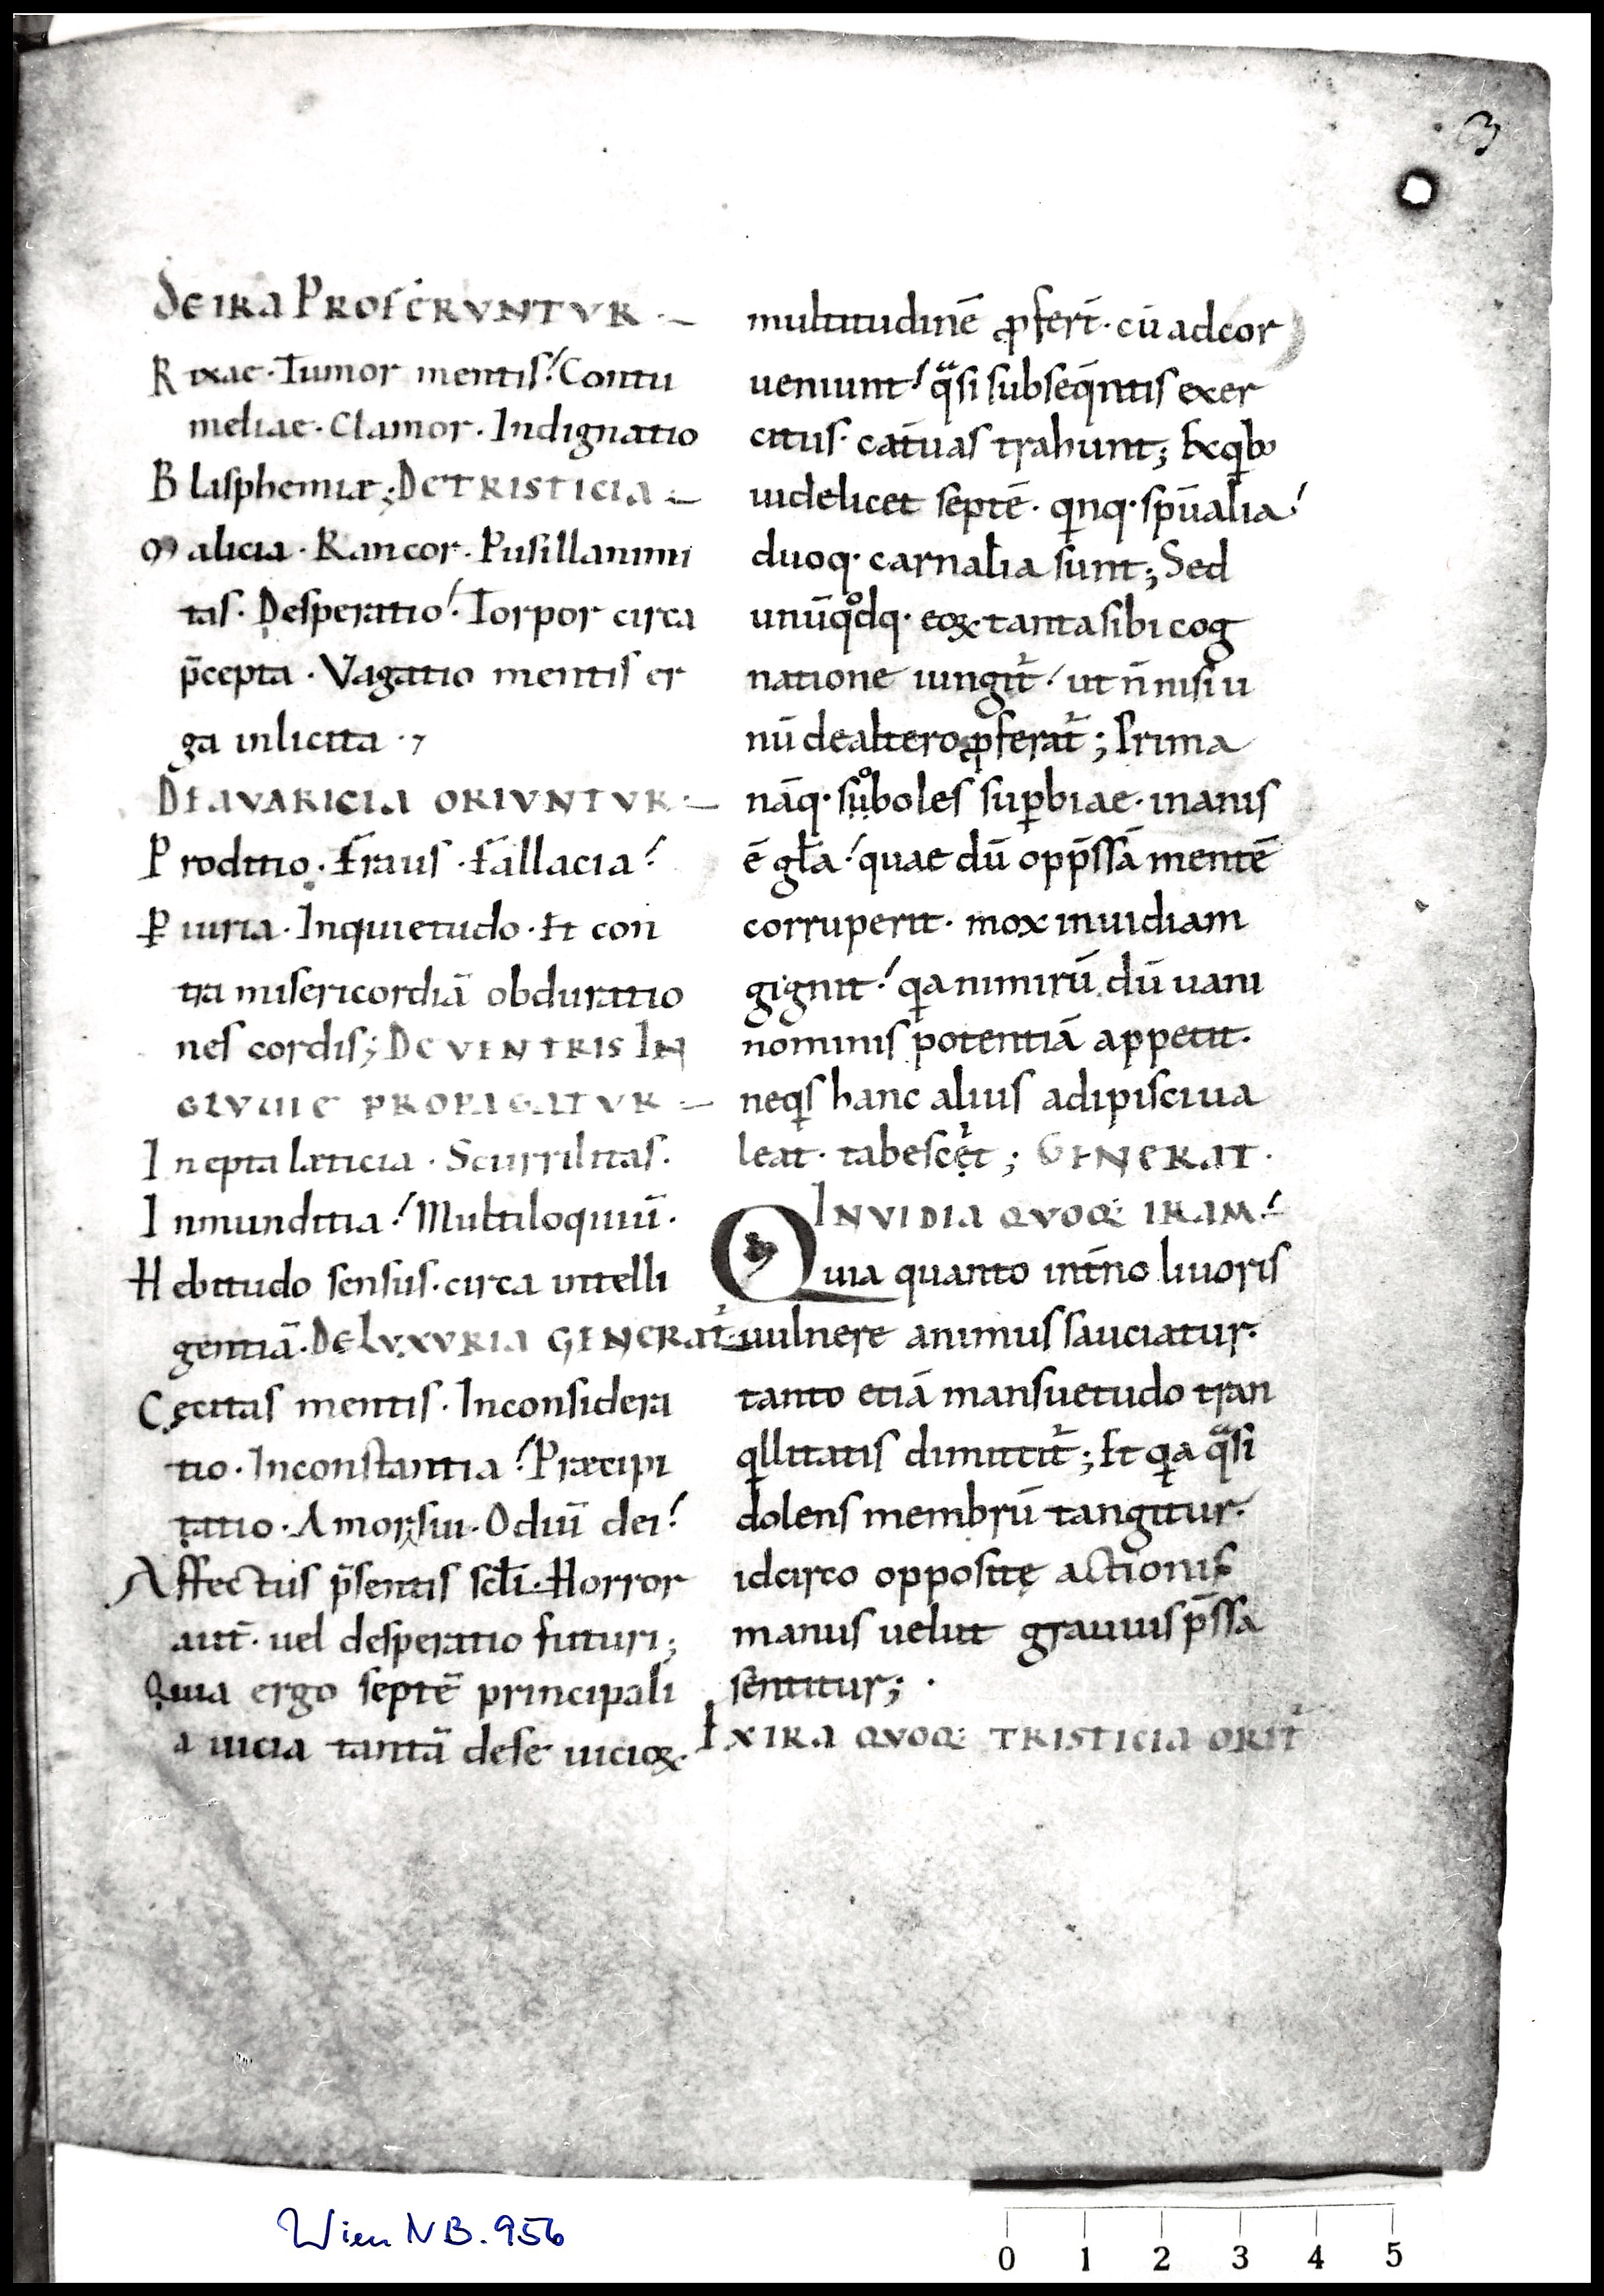 3
De ira Proferuntur .—
Rixae· Tumor mentis! Contu
meliae· Clamor· Indignatio
Blasphemiæ; De tristicia .—
Malicia· Rancor· Pusillanimi
tas· Desperatio! Torpor circa
p̄cepta· Vagatio mentis er
ga inlicita ·,
De avaricia oriuntur .—
Proditio· Fraus· Fallacia!
Ꝑiuria· Inquietudo· Et con
tra misericordiā obduratio
nes cordis; De ventris in
gluuie propagatur .—
Inepta læticia· Scurrilitas·
Inmunditia! Multiloquiuū·
Hebitudo sensus· circa intelli
gentiā· De luxuria generat̄
Cęcitas mentis· Inconsidera
tio· Inconstantia! Præcipi
tatio· Amor sui· Odiū dei!
Affectus p̄sentis sc̄li· Horror
aut̄· uel desperatio futuri;
Quia ergo septē principali
a uicia tantā de se uicioꝝ·
multitudinē ꝓfert̄· cū ad cor
ueniunt! qᵃsi subseq̄ntis exer
citus· cat̄uas trahunt; Ex qib;
uidelicet septē· qinq· sp̄ualia!
duoq· carnalia sunt; Sed
unūqᵒdq· eoꝝ tanta sibi cog
natione iungit̄! ut n̄ nisi u
nū de altero ꝓferat̄; Prima
nāq· suᵒboles suꝑbiae· inanis
ē gl̄a! quae dū opp̄ssā mentē
corruperit· mox inuidiam
gignit! qⁱa nimirū dū uani
nominis potentiā appetit·
neqⁱs hanc alius adipisci ua
leat· tabescęt̄; Generat·
Invidia quoq; iram!
Quia quanto int̄no liuoris
uulnere animus sauciatur·
tanto etiā mansuetudo tran
qⁱllitatis dimittit̄; Et qⁱa qᵃsi
dolens membrū tangitur·
idcirco opposite̜ actionis
manus uelut grauius p̄ssa
sentitur; ·
Ex ira quoq; tristicia orit̄
Wien NB. 956
0 1 2 3 4 5